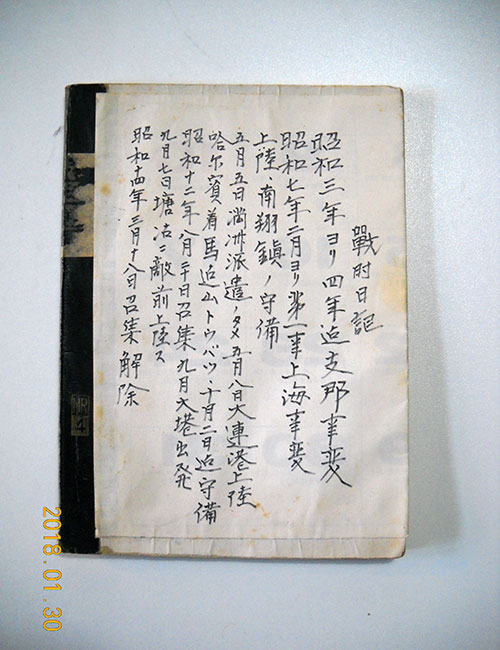 戰时日記
昭和三年ヨリ四年迠支那事変
昭和七年二月ヨリ第一車上海事変
上陸、南翔鎮ノ守備
五月五日満洲派遣ノタメ五月八日大連港上陸
哈尔賓着馬迠山トウバツ、十月二日迠守備
昭和十二年八月二十日召集九月大塔出発
九月七日塘沽ニ敵前上陸ス
昭和十四年三月十八日召集解除
4
2018.01.30